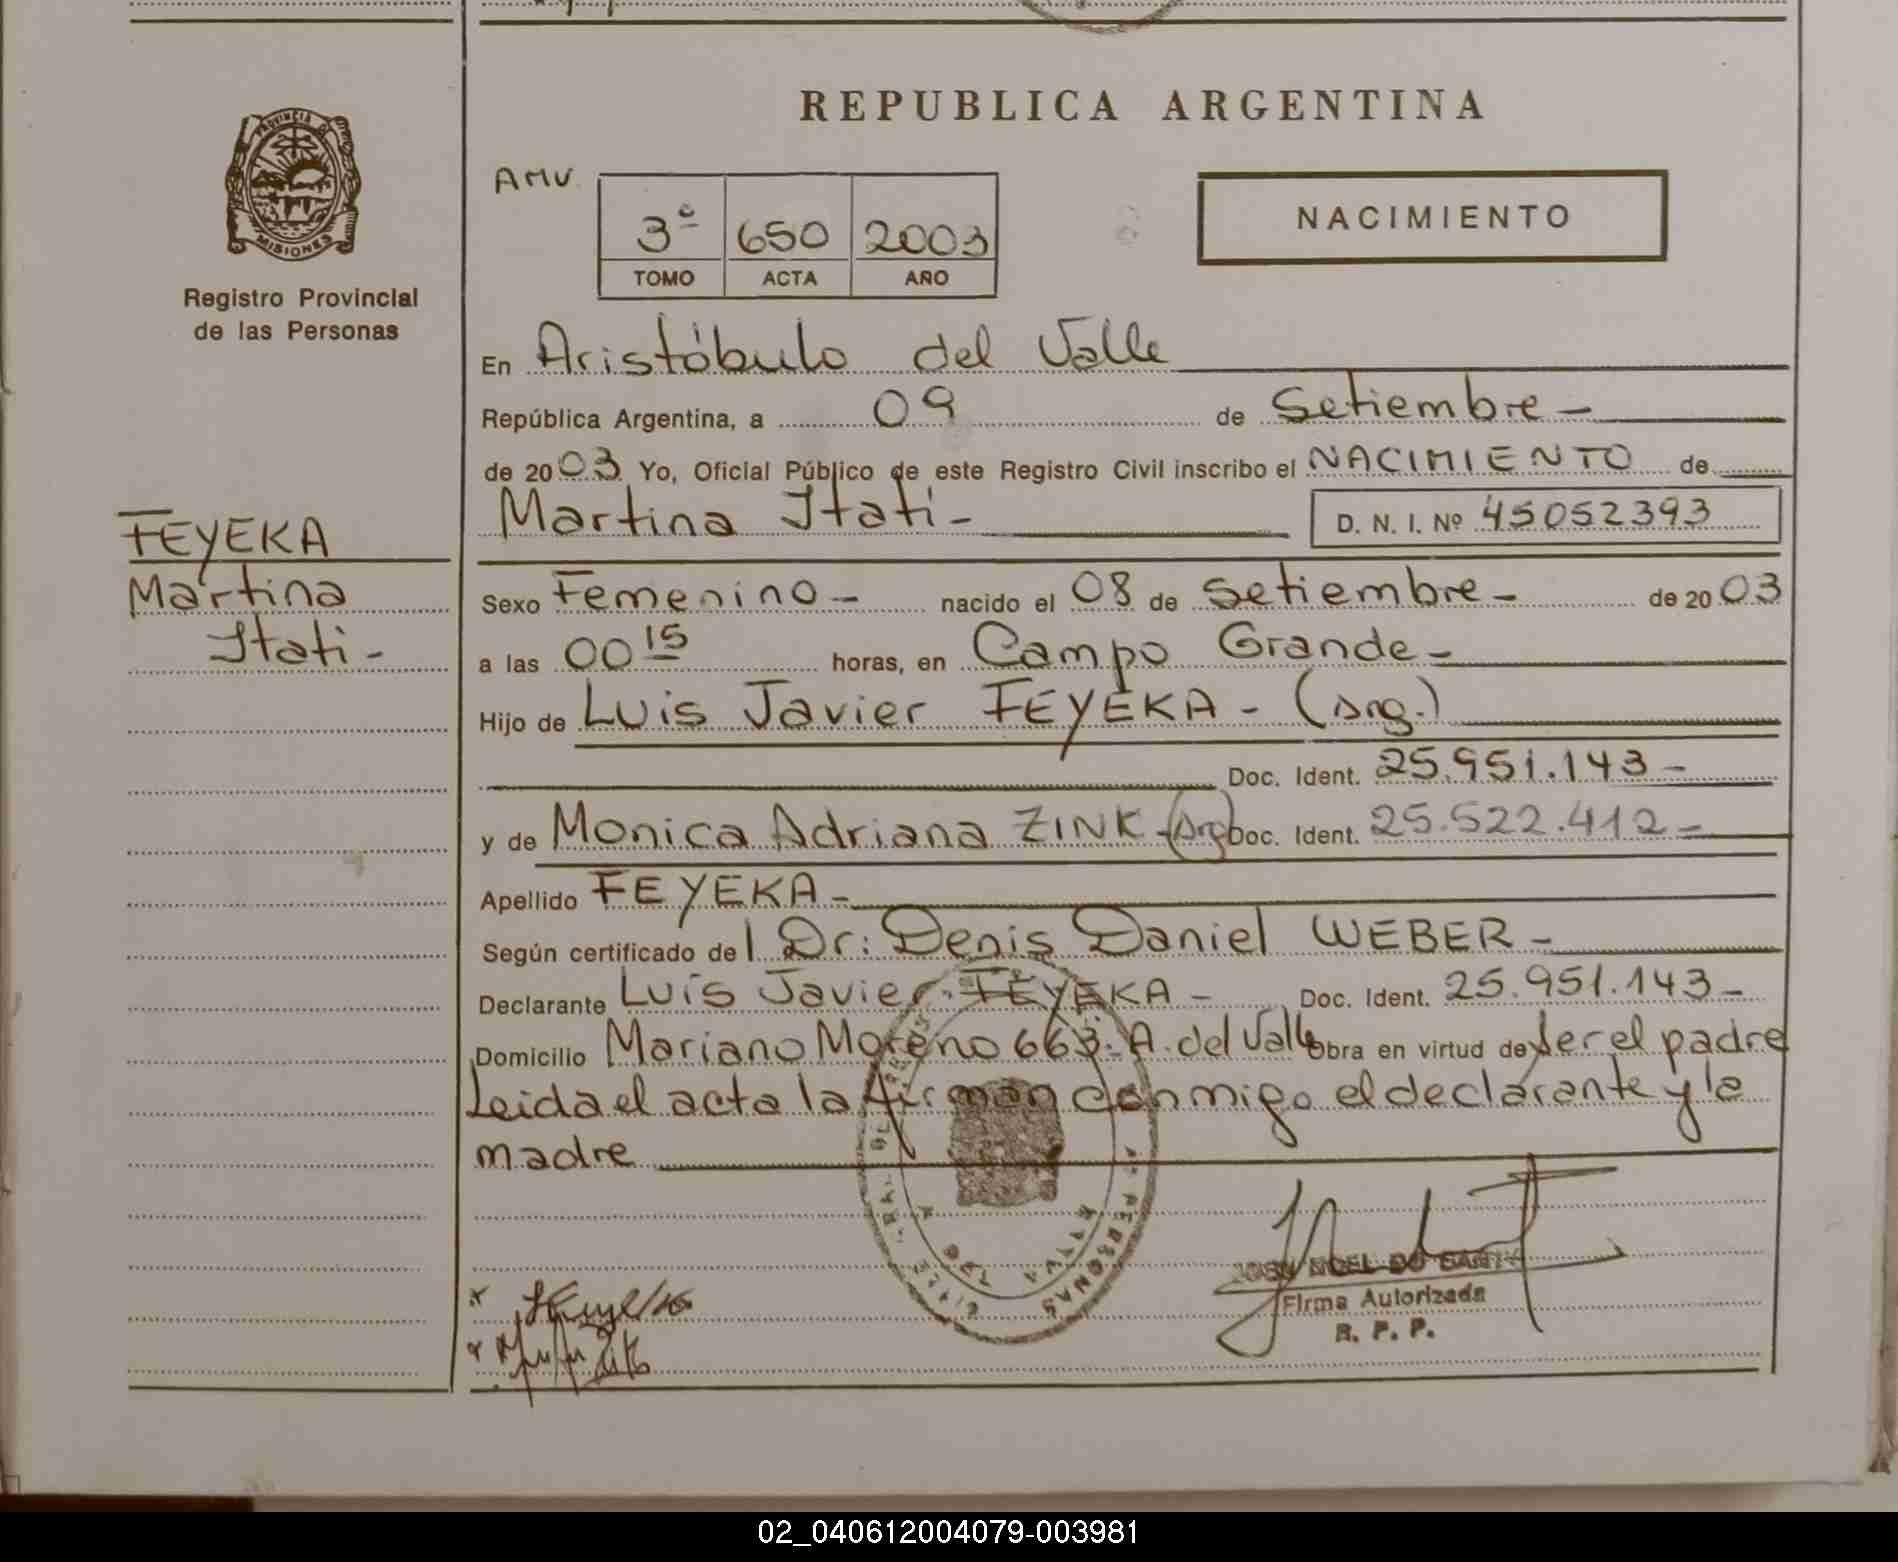 REPUBLICA ARGENTINA
PROVINCIA DE MISIONES
Registro Provincial
de las Personas
AMV
3º 650 2003
TOMO ACTA AÑO
NACIMIENTO
En Aristóbulo del Valle
República Argentina, a 09 de Setiembre -
de 2003 Yo, Oficial Público de este Registro Civil inscribo el NACIMIENTO de
Martina Itati - D. N. I. Nº 45052393
FEYEKA
Martina
Itati -
Sexo Femenino - nacido el 08 de Setiembre - de 2003
a las 00 15 horas, en Campo Grande -
Hijo de Luis Javier FEYEKA - (Arg.)
Doc. Ident. 25.951.143 -
y de Monica Adriana ZINK - (Arg) Doc. Ident. 25.522.412 -
Apellido FEYEKA -
Según certificado del Dr: Denis Daniel WEBER -
Declarante Luis Javier FEYEKA - Doc. Ident. 25.951.143 -
Domicilio Mariano Moreno 663. A. del Valle Obra en virtud de Ser el padre
Leida el acta la firman conmigo el declarante y la
madre
PERSONAS
Firma Autorizada
R. P. P.
02_040612004079-003981